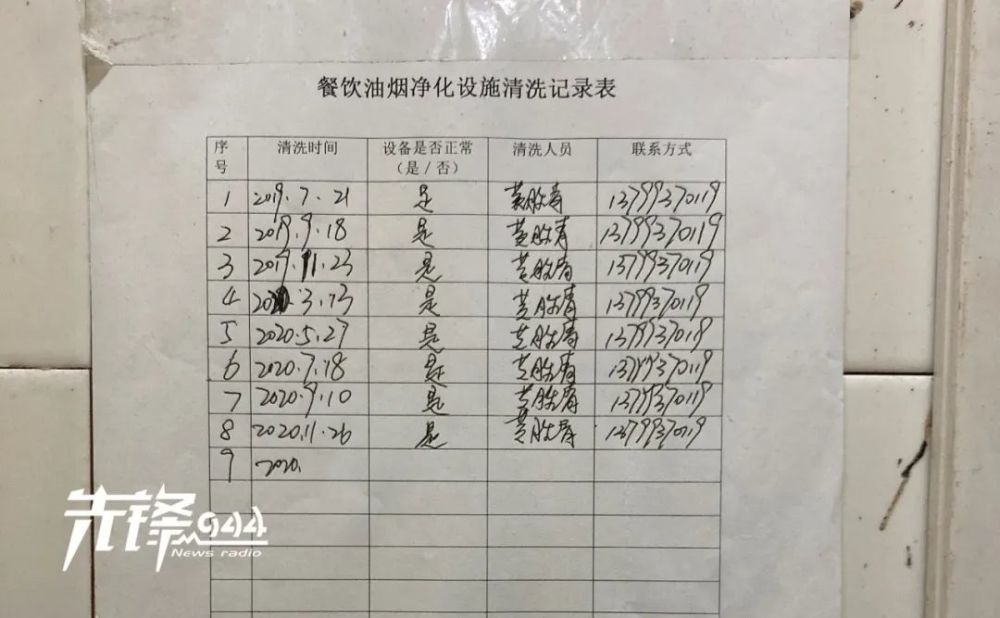 餐饮油烟净化设施清洗记录表
序号 清洗时间 设备是否正常（是/否） 清洗人员 联系方式
1 2019.7.21 是 13799370119
2 2019.9.18 是 13799370119
3 2019.11.23 是 13799370119
4 2020.3.13 是 13799370119
5 2020.5.27 是 13799370119
6 2020.7.18 是 13799370119
7 2020.9.10 是 13799370119
8 2020.11.26 是 13799370119
9 2020.
先锋944
News radio